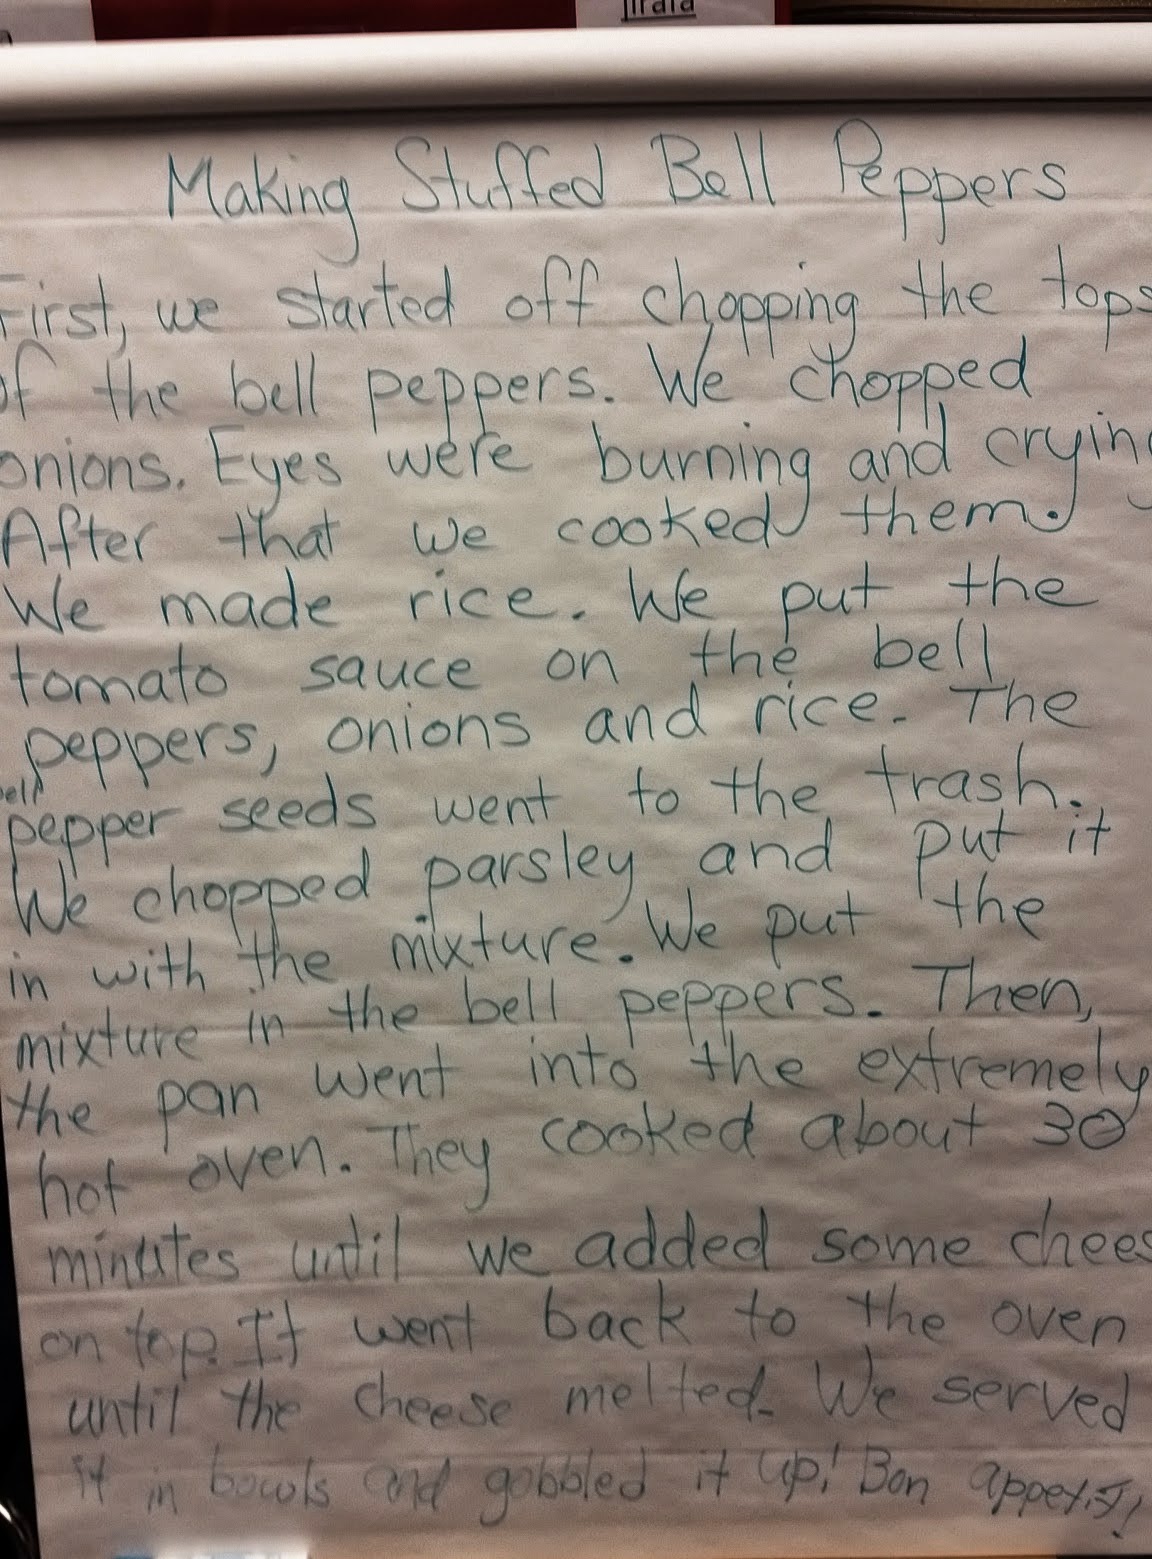 Making Stuffed Bell Peppers
First, we started off chopping the tops
of the bell peppers. We chopped
onions. Eyes were burning and crying
After that we cooked them.
We made rice. We put the
tomato sauce on the bell
peppers, onions and rice. The
bell
pepper seeds went to the trash.
We chopped parsley and put it
in with the mixture. We put the
mixture in the bell peppers. Then,
the pan went into the extremely
hot oven. They cooked about 30
minutes until we added some chees
on top. It went back to the oven
until the cheese melted. We served
it in bowls and gobbled it up! Bon appetit!